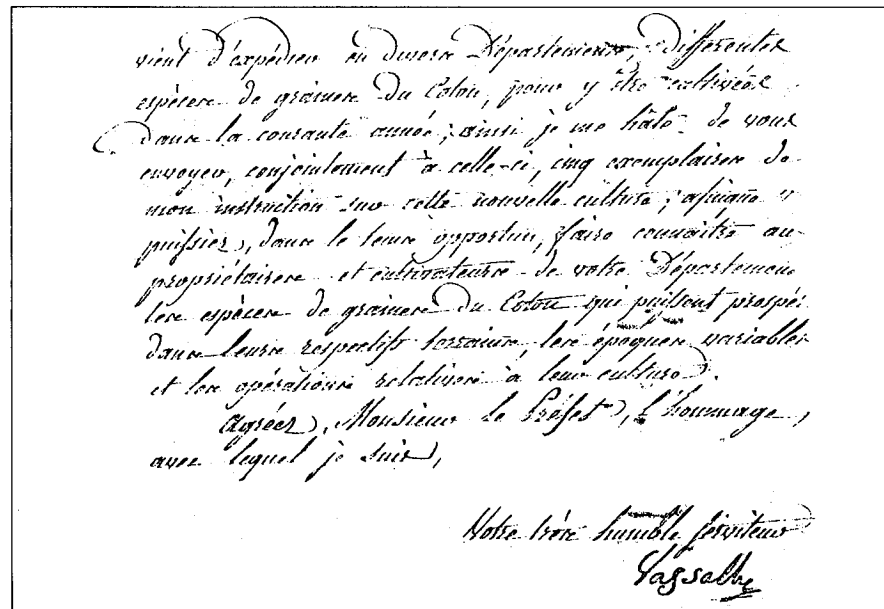 vient d'expédier en divers Départements, differentes
espèces de graines du Coton, pour y être cultivées
dans la courante année; ainsi je me hâte de vous
envoyer, conjointement à celle-ci, cinq exemplaires de
mon instruction sur cette nouvelle culture; afinque v
puissiez, dans le tems opportun, faire connaître au
propriétaires et cultivateurs de votre Départemen
les espèces de graines du Coton qui puissent prospér
dans leurs respectifs terrains, les époques variables
et les opérations relatives à leur culture.
Agréez, Monsieur le Préfet, l'hommage,
avec lequel je suis,
Votre très humble serviteur
Vassalli